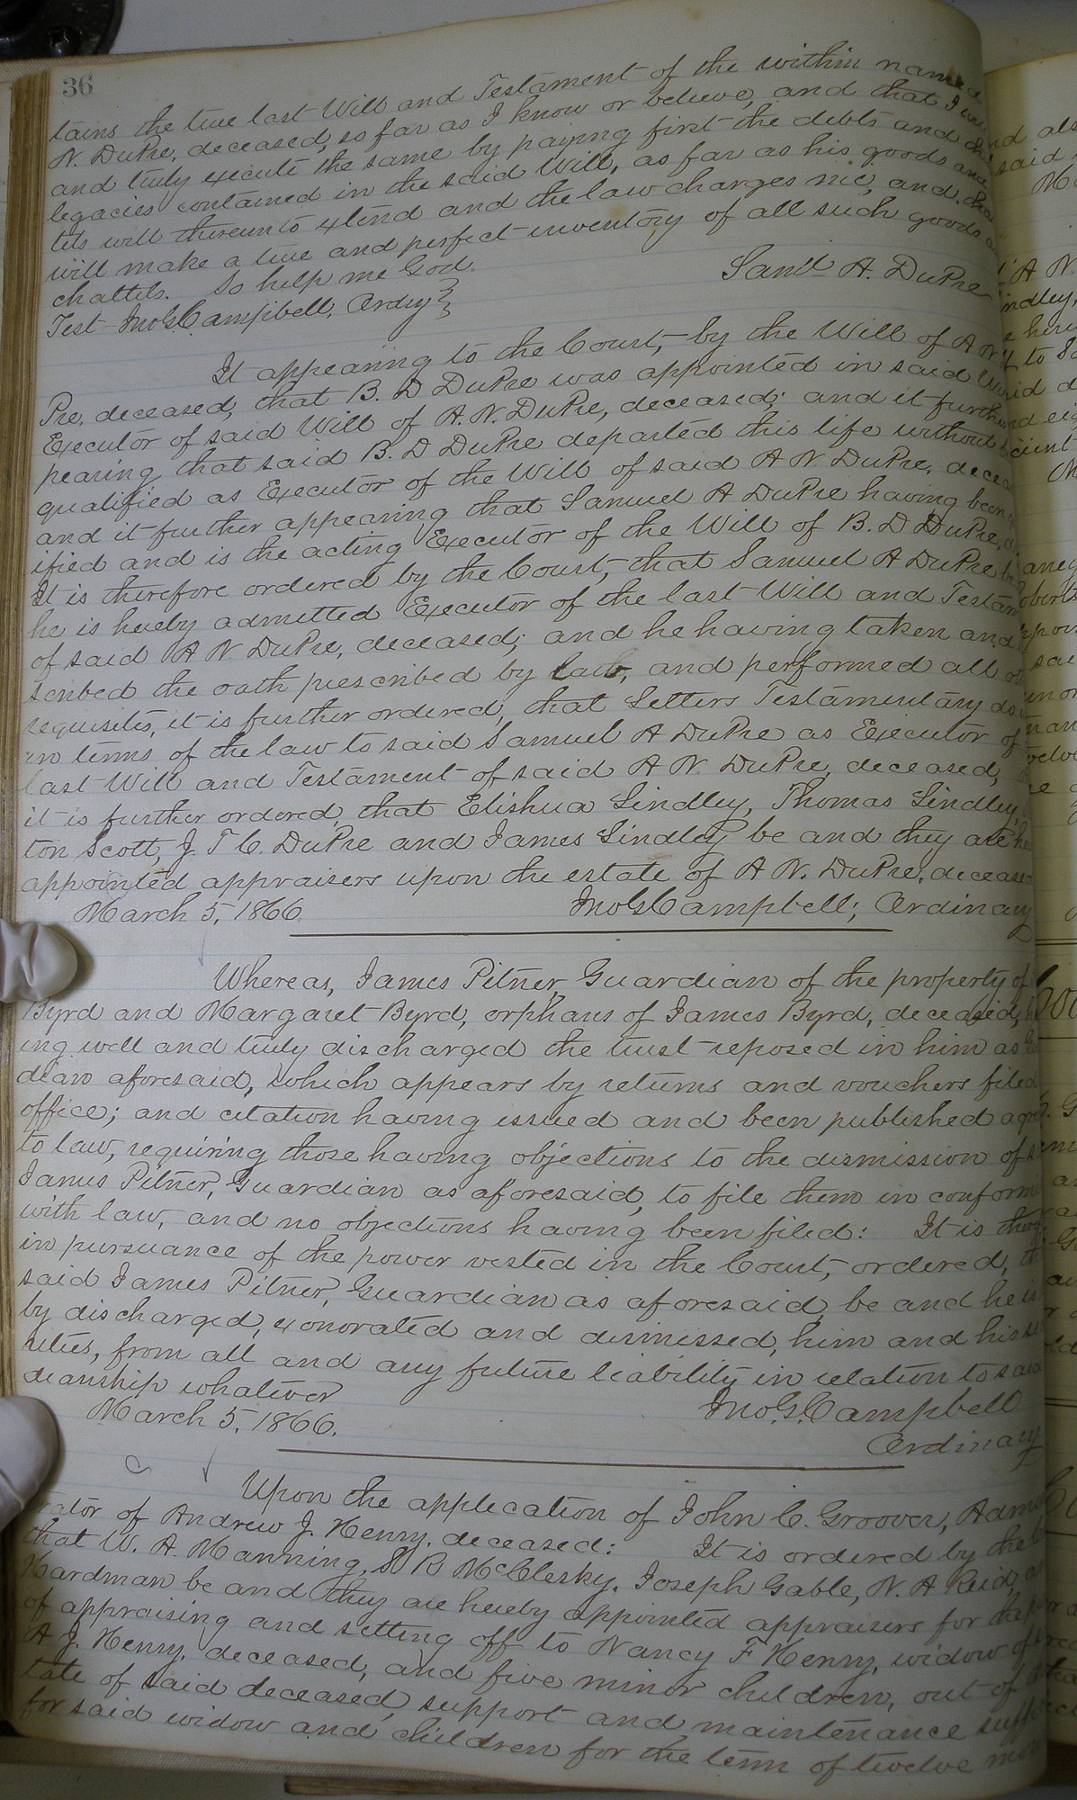 36
tains the true last Will and Testament of the within named
N. DuPre, deceased, so far as I know or believe, and that I
and truly execute the same by paying first the debts and
legacies contained in the said Will, as far as his goods and
tels will thereunto extend and the law charges me, and
will make a true and perfect inventory of all such goods
chattels. So help me God.
Saml A. DuPre
Test Jno G Campbell, Ordry
It appearing to the Court, by the Will of A N
Pre, deceased, that B. D DuPre was appointed in said
Executor of said Will of A. N. DuPre, deceased; and it further
pearing that said B. D DuPre departed this life without
qualified as Executor of the Will of said A N DuPre, decea
and it further appearing that Samuel A DuPre having been
ified and is the acting Executor of the Will of B. D DuPre,
It is therefore ordered by the Court, that Samuel A DuPre
he is hereby admitted Executor of the last Will and Testam
of said A N DuPre, deceased; and he having taken and
scribed the oath prescribed by law, and performed all
requisites, it is further ordered, that Letters Testamentary do
in terms of the law to said Samuel A DuPre as Executor of
last Will and Testament of said A N. DuPre, deceased,
it is further ordered, that Elishua Lindley, Thomas Lindley,
ton Scott, J. T C. DuPre and James Lindley be and they are
appointed appraisers upon the estate of A N. DuPre, deceased
March 5, 1866. Jno G Campbell, Ordinary
Whereas, James Pitner Guardian of the property of
Byrd and Margaret Byrd, orphans of James Byrd, deceased,
ing well and truly discharged the trust reposed in him as
dian aforesaid, which appears by returns and vouchers filed
office; and citation having issued and been published agre
to law, requiring those having objections to the dismission of
James Pitner, Guardian as aforesaid, to file them in conform
with law, and no objections having been filed: It is there
in pursuance of the power vested in the Court, ordered,
said James Pitner, Guardian as aforesaid, be and he is
by discharged, exonorated and dismissed, him and his
rities, from all and any future liability in relation to said
dianship whatever
March 5, 1866. Jno. G. Campbell
Ordinary
Upon the application of John C. Groover, Admi
rator of Andrew J. Henry, deceased: It is ordered by the
that W. A. Manning, B McClesky, Joseph Gable, N. A Reid,
Hardman be and they are hereby appointed appraisers for the
of appraising and setting off to Nancy F Henry, widow of
A J. Henry, deceased, and five minor children, out of
tate of said deceased, support and maintenance suff
for said widow and children for the term of twelve